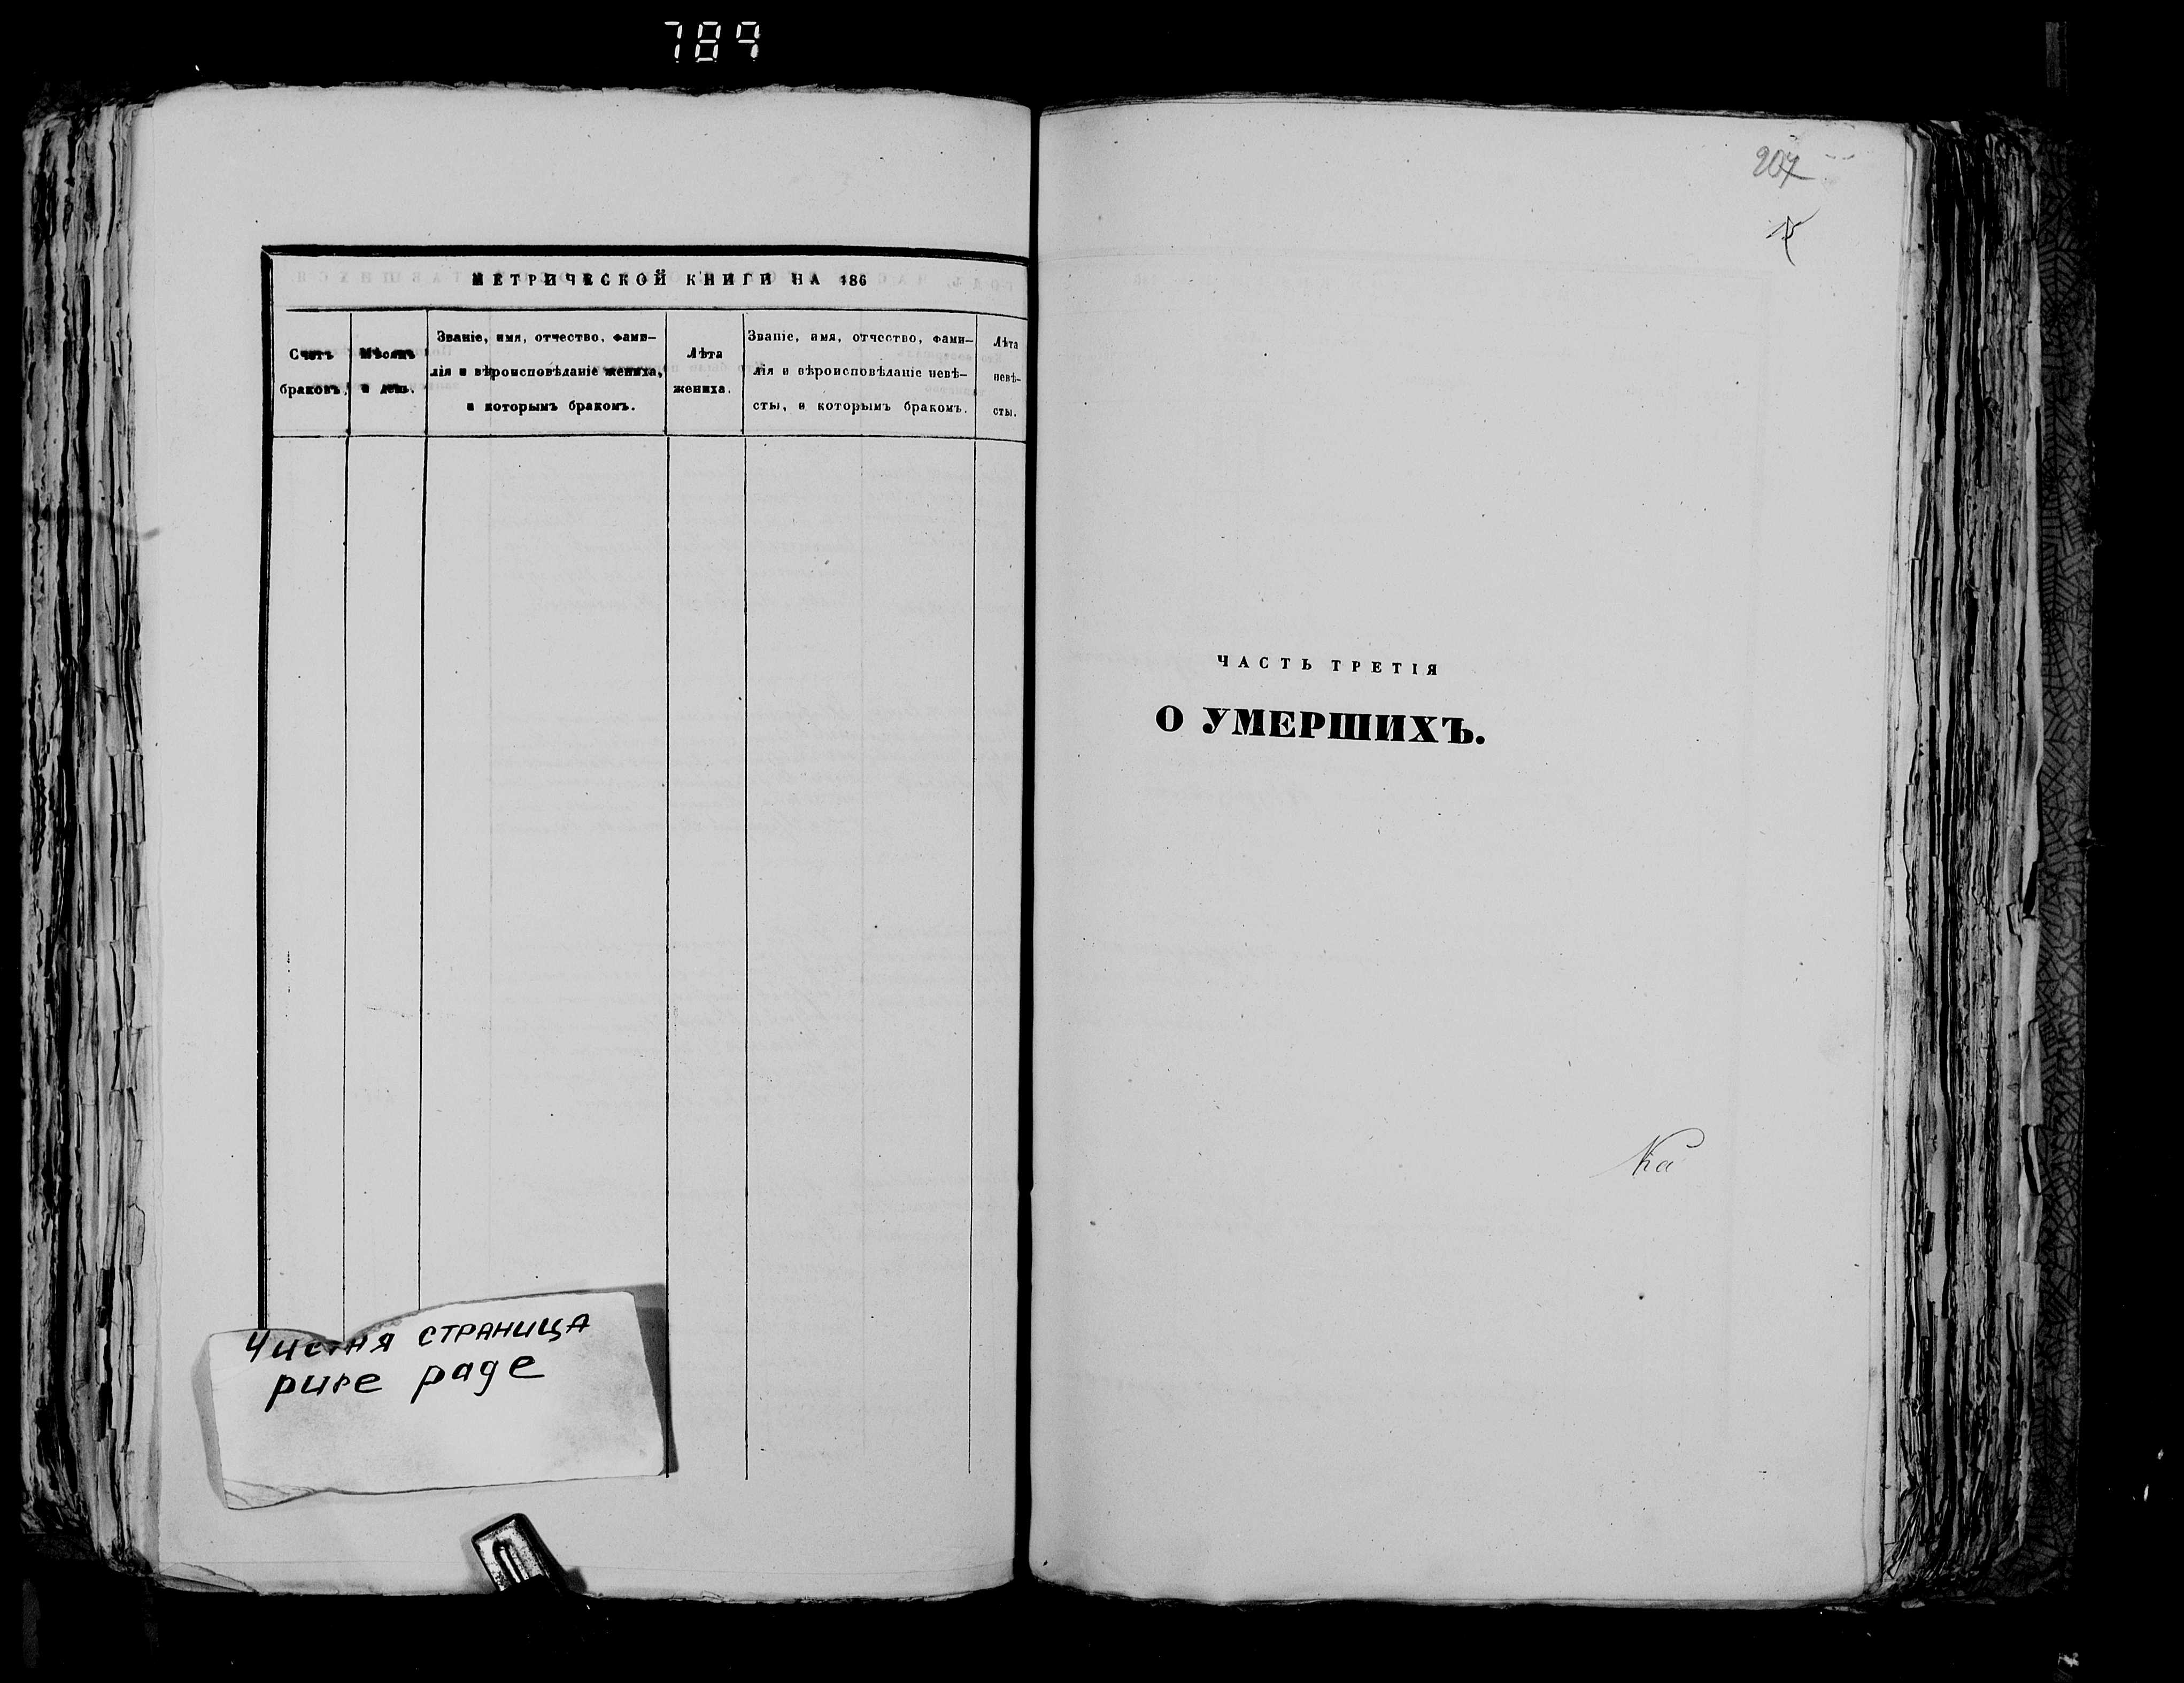 789
МЕТРИЧЕСКОЙ КНИГИ НА 186
Счетъ
браковъ.
Мѣсяцъ
и день.
Званіе, имя, отчество, фами-
лія и вѣроисповѣданіе жениха,
и которымъ бракомъ.
Лѣта
жениха.
Званіе, имя, отчество, фами-
лія и вѣроисповѣданіе невѣ-
сты, и которымъ бракомъ.
Лѣта
невѣ-
сты.
Чистая страница
pure page
207
ЧАСТЬ ТРЕТІЯ
О УМЕРШИХЪ.